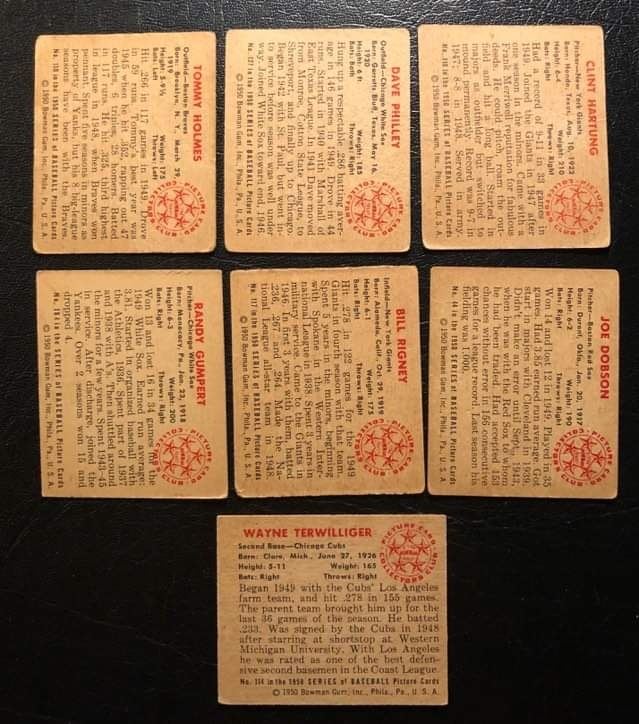 TOMMY HOLMES
Outfield—Boston Braves
Born: Brooklyn, N. Y., March 29,
1918
Height: 5-9½ Weight: 175
Bats: Left Throws: Left
Hit .266 in 117 games in 1949. Drove
in 59 runs. Tommy's best year was
1945 when he hit .352, rapping out 47
doubles, 6 triples, 28 homers. Batted
in 117 runs. He hit .325, third highest
in league in 1948, when Braves won
pennant. Five seasons in minors as
property of Yanks, but his 8 big-league
seasons have been with the Braves.
in the 1950 SERIES of BASEBALL Picture Cards
© 1950 Bowman Gum, Inc., Phila., Pa., U. S. A.
DAVE PHILLEY
Outfield—Chicago White Sox
Height: 6 ft. Weight: 185
Bats: Both
Hung up a respectable .286 batting aver-
age in 146 games in 1949. Drove in 44
runs. Started in 1940 with Marshall of
East Texas League. Spent 1941 Division
from Monroe, Cotton State League, to
Shreveport, and finally up to Chicago.
Began 1942 with St. Paul, but went in-
to service before season was well under
way. Joined White Sox toward end, 1946.
in the 1950 SERIES of BASEBALL Picture Cards
© 1950 Bowman Gum, Inc., Phila., Pa., U. S. A.
CLINT HARTUNG
Pitcher—New York Giants
Born: Hondo, Texas, Aug. 10, 1922
Height: 6-4
Throws: Right
Had a record of 9-11 in 33 games in
1949. Joined the Giants in 1947 after
one season in minors. Came up with
Frank Merriwell reputation for fabulous
deeds. He could pitch, roam the out-
field and hit a long ball. Started in
majors as outfielder but switched to
mound permanently. Record was 9-7 in
1947; 8-8 in 1948. Served in army.
in the 1950 SERIES of BASEBALL Picture Cards
© 1950 Bowman Gum, Inc., Phila., Pa., U. S. A.
RANDY GUMPERT
Pitcher—Chicago White Sox
Born: Monocacy, Pa., Jan. 23, 1918
Height: 6-3 Weight: 200
Bats: Right Throws: Right
Won 13 and lost 16 in 34 games for the
1949 White Sox. Earned run average:
3.81. Started in organized baseball with
the Athletics, 1936. Spent part of 1937
and 1938 with A's. Then shuttled around
the minors for a few years. Spent 1943-45
in service. After discharge, joined the
Yankees. Over 2 seasons won 15 and
dropped 4.
in the 1950 SERIES of BASEBALL Picture Cards
© 1950 Bowman Gum, Inc., Phila., Pa., U. S. A.
BILL RIGNEY
Infield—New York Giants
Born: Alameda, Calif., Jan. 29, 1919
Height: 6-1 Weight: 175
Bats: Right Throws: Right
Hit .278 in 122 games for the 1949
Giants in fourth season with that team.
Spent 5 years in the minors, beginning
with Spokane in the Western Inter-
national League in 1938. Spent 3 years in
military service. Came to the Giants in
1946. In first 3 years with them, batted
.236, .267 and .264. Made the Na-
tional League all-star team in 1948.
No. 117 in the 1950 SERIES of BASEBALL Picture Cards
© 1950 Bowman Gum, Inc., Phila., Pa., U. S. A.
JOE DOBSON
Pitcher—Boston Red Sox
Born: Durant, Okla., Jan. 20, 1917
Height: 6-2 Weight: 190
Bats: Right Throws: Right
Won 14 and lost 12 in 1949. Played in 35
games. Had 3.85 earned run average. Got
start in majors with Cleveland in 1939.
Didn't make an error until Sept., 1943,
when he was with the Red Sox to whom
he had been traded. Had accepted 153
chances without error in 156 consecutive
games for a league record. Last season his
fielding was 1.000.
No. 44 in the 1950 SERIES of BASEBALL Picture Cards
© 1950 Bowman Gum, Inc., Phila., Pa., U. S. A.
WAYNE TERWILLIGER
Second Base—Chicago Cubs
Born: Clare, Mich., June 27, 1926
Height: 5-11 Weight: 165
Bats: Right Throws: Right
PICTURE CARD COLLECTORS CLUB
Began 1949 with the Cubs' Los Angeles
farm team, and hit .278 in 155 games.
The parent team brought him up for the
last 36 games of the season. He batted
.233. Was signed by the Cubs in 1948
after starring at shortstop at Western
Michigan University. With Los Angeles
he was rated as one of the best defen-
sive second basemen in the Coast League.
No. 114 in the 1950 SERIES of BASEBALL Picture Cards
© 1950 Bowman Gum, Inc., Phila., Pa., U. S. A.